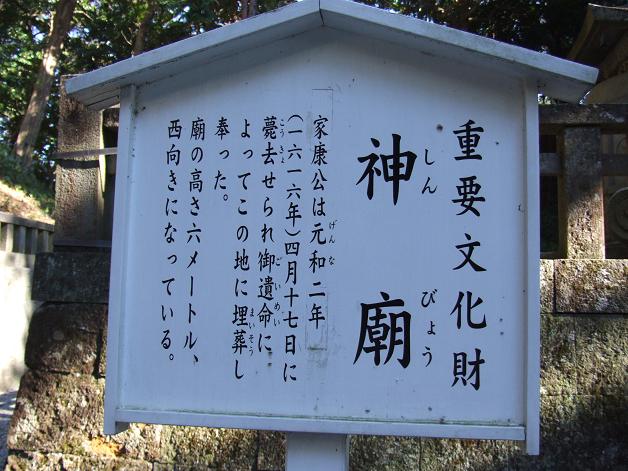 重要文化財
神廟
しんびょう
家康公は元和二年
げんな
(一六一六年)四月十七日に
薨去せられ御遺命に
こうきょ
ごいめい
よってこの地に埋葬し
まいそう
奉った。
廟の高さ六メートル、
西向きになっている。